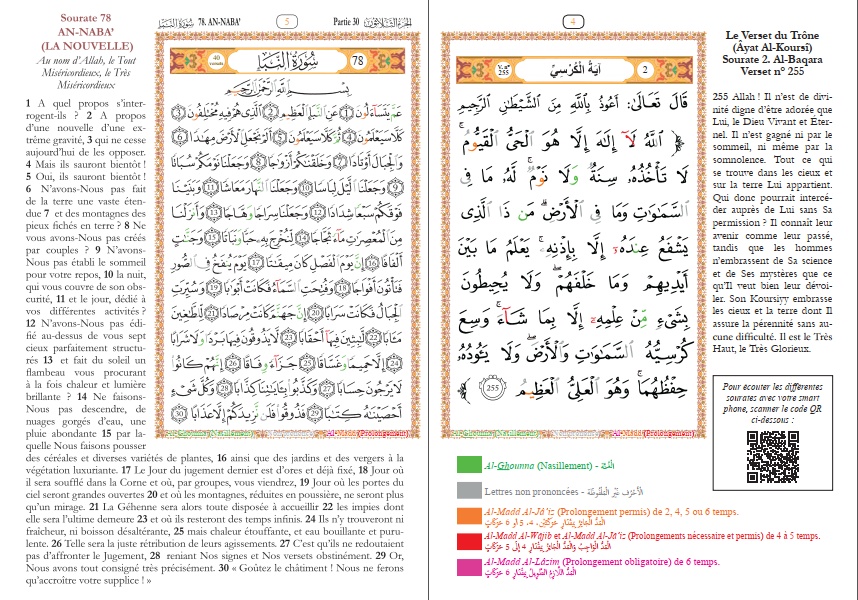 Sourate 78
AN-NABA'
(LA NOUVELLE)
Au nom d'Allah, le Tout
Miséricordieux, le Très
Miséricordieux
1 A quel propos s'inter-
rogent-ils ? 2 A propos
d'une nouvelle d'une ex-
trême gravité, 3 qui ne cesse
aujourd'hui de les opposer.
4 Mais ils sauront bientôt !
5 Oui, ils sauront bientôt !
6 N'avons-Nous pas fait
de la terre une vaste éten-
due 7 et des montagnes des
pieux fichés en terre ? 8 Ne
vous avons-Nous pas créés
par couples ? 9 N'avons-
Nous pas établi le sommeil
pour votre repos, 10 la nuit,
qui vous couvre de son obs-
curité, 11 et le jour, dédié à
vos différentes activités ?
12 N'avons-Nous pas édi-
fié au-dessus de vous sept
cieux parfaitement structu-
rés 13 et fait du soleil un
flambeau vous procurant
à la fois chaleur et lumière
brillante ? 14 Ne faisons-
Nous pas descendre, de
nuages gorgés d'eau, une
pluie abondante 15 par la-
quelle Nous faisons pousser
des céréales et diverses variétés de plantes, 16 ainsi que des jardins et des vergers à la
végétation luxuriante. 17 Le Jour du jugement dernier est d'ores et déjà fixé, 18 Jour où
il sera soufflé dans la Corne et où, par groupes, vous viendrez, 19 Jour où les portes du
ciel seront grandes ouvertes 20 et où les montagnes, réduites en poussière, ne seront plus
qu'un mirage. 21 La Géhenne sera alors toute disposée à accueillir 22 les impies dont
elle sera l'ultime demeure 23 et où ils resteront des temps infinis. 24 Ils n'y trouveront ni
fraîcheur, ni boisson désaltérante, 25 mais chaleur étouffante, et eau bouillante et puru-
lente. 26 Telle sera la juste rétribution de leurs agissements. 27 C'est qu'ils ne redoutaient
pas d'affronter le Jugement, 28 reniant Nos signes et Nos versets obstinément. 29 Or,
Nous avons tout consigné très précisément. 30 « Goûtez le châtiment ! Nous ne ferons
qu'accroître votre supplice ! »
سُورَةُ النَّبَإِ 78. AN-NABA' 5 Partie 30 الجزء الثلاثون
40 versets سُورَةُ النَّبَإِ 78
بِسْمِ اللَّهِ الرَّحْمَٰنِ الرَّحِيمِ
عَمَّ يَتَسَاءَلُونَ (1) عَنِ النَّبَإِ الْعَظِيمِ (2) الَّذِي هُمْ فِيهِ مُخْتَلِفُونَ (3)
كَلَّا سَيَعْلَمُونَ (4) ثُمَّ كَلَّا سَيَعْلَمُونَ (5) أَلَمْ نَجْعَلِ الْأَرْضَ مِهَادًا (6)
وَالْجِبَالَ أَوْتَادًا (7) وَخَلَقْنَاكُمْ أَزْوَاجًا (8) وَجَعَلْنَا نَوْمَكُمْ سُبَاتًا
(9) وَجَعَلْنَا اللَّيْلَ لِبَاسًا (10) وَجَعَلْنَا النَّهَارَ مَعَاشًا (11) وَبَنَيْنَا
فَوْقَكُمْ سَبْعًا شِدَادًا (12) وَجَعَلْنَا سِرَاجًا وَهَّاجًا (13) وَأَنزَلْنَا
مِنَ الْمُعْصِرَاتِ مَاءً ثَجَّاجًا (14) لِنُخْرِجَ بِهِ حَبًّا وَنَبَاتًا (15) وَجَنَّاتٍ
أَلْفَافًا (16) إِنَّ يَوْمَ الْفَصْلِ كَانَ مِيقَاتًا (17) يَوْمَ يُنفَخُ فِي الصُّورِ
فَتَأْتُونَ أَفْوَاجًا (18) وَفُتِحَتِ السَّمَاءُ فَكَانَتْ أَبْوَابًا (19) وَسُيِّرَتِ
الْجِبَالُ فَكَانَتْ سَرَابًا (20) إِنَّ جَهَنَّمَ كَانَتْ مِرْصَادًا (21) لِلطَّاغِينَ
مَآبًا (22) لَابِثِينَ فِيهَا أَحْقَابًا (23) لَا يَذُوقُونَ فِيهَا بَرْدًا وَلَا شَرَابًا
(24) إِلَّا حَمِيمًا وَغَسَّاقًا (25) جَزَاءً وِفَاقًا (26) إِنَّهُمْ كَانُوا
لَا يَرْجُونَ حِسَابًا (27) وَكَذَّبُوا بِآيَاتِنَا كِذَّابًا (28) وَكُلَّ شَيْءٍ
أَحْصَيْنَاهُ كِتَابًا (29) فَذُوقُوا فَلَن نَّزِيدَكُمْ إِلَّا عَذَابًا (30)
Al-Ghounna(Nasillement) Al-Madd(Prolongement)
4
V. n° 255 آيَةُ الْكُرْسِيِّ 2
قَالَ تَعَالَى: أَعُوذُ بِاللَّهِ مِنَ الشَّيْطَانِ الرَّجِيمِ
﴿ اللَّهُ لَا إِلَٰهَ إِلَّا هُوَ الْحَيُّ الْقَيُّومُ ۚ
لَا تَأْخُذُهُ سِنَةٌ وَلَا نَوْمٌ ۚ لَّهُ مَا فِي
السَّمَاوَاتِ وَمَا فِي الْأَرْضِ ۗ مَن ذَا الَّذِي
يَشْفَعُ عِندَهُ إِلَّا بِإِذْنِهِ ۚ يَعْلَمُ مَا بَيْنَ
أَيْدِيهِمْ وَمَا خَلْفَهُمْ ۖ وَلَا يُحِيطُونَ
بِشَيْءٍ مِّنْ عِلْمِهِ إِلَّا بِمَا شَاءَ ۚ وَسِعَ
كُرْسِيُّهُ السَّمَاوَاتِ وَالْأَرْضَ ۖ وَلَا يَئُودُهُ
حِفْظُهُمَا ۚ وَهُوَ الْعَلِيُّ الْعَظِيمُ (255) ﴾
Al-Ghounna(Nasillement) Al-Madd(Prolongement)
Al-Ghounna (Nasillement) - الْغُنَّةُ
Lettres non prononcées - الْأَحْرُفُ غَيْرُ الْمَلْفُوظَةِ
Al-Madd Al-Jâ'iz (Prolongement permis) de 2, 4, 5 ou 6 temps.
الْمَدُّ الْجَائِزُ بِمِقْدَارِ حَرَكَتَيْنِ، 4، 5 أو 6 حَرَكَاتٍ
Al-Madd Al-Wâjib et Al-Madd Al-Jâ'iz (Prolongements nécessaire et permis) de 4 à 5 temps.
الْمَدُّ الْوَاجِبُ وَالْمَدُّ الْجَائِزُ بِمِقْدَارِ 4 إِلَى 5 حَرَكَاتٍ
Al-Madd Al-Lâzim (Prolongement obligatoire) de 6 temps.
الْمَدُّ اللَّازِمُ الطَّوِيلُ بِمِقْدَارِ 6 حَرَكَاتٍ
Le Verset du Trône
(Âyat Al-Koursî)
Sourate 2. Al-Baqara
Verset n° 255
255 Allah ! Il n'est de divi-
nité digne d'être adorée que
Lui, le Dieu Vivant et Éter-
nel. Il n'est gagné ni par le
sommeil, ni même par la
somnolence. Tout ce qui
se trouve dans les cieux et
sur la terre Lui appartient.
Qui donc pourrait intercé-
der auprès de Lui sans Sa
permission ? Il connait leur
avenir comme leur passé,
tandis que les hommes
n'embrassent de Sa science
et de Ses mystères que ce
qu'Il veut bien leur dévoi-
ler. Son Koursiyy embrasse
les cieux et la terre dont Il
assure la pérennité sans au-
cune difficulté. Il est le Très
Haut, le Très Glorieux.
Pour écouter les différentes
sourates avec votre smart
phone, scanner le code QR
ci-dessous :